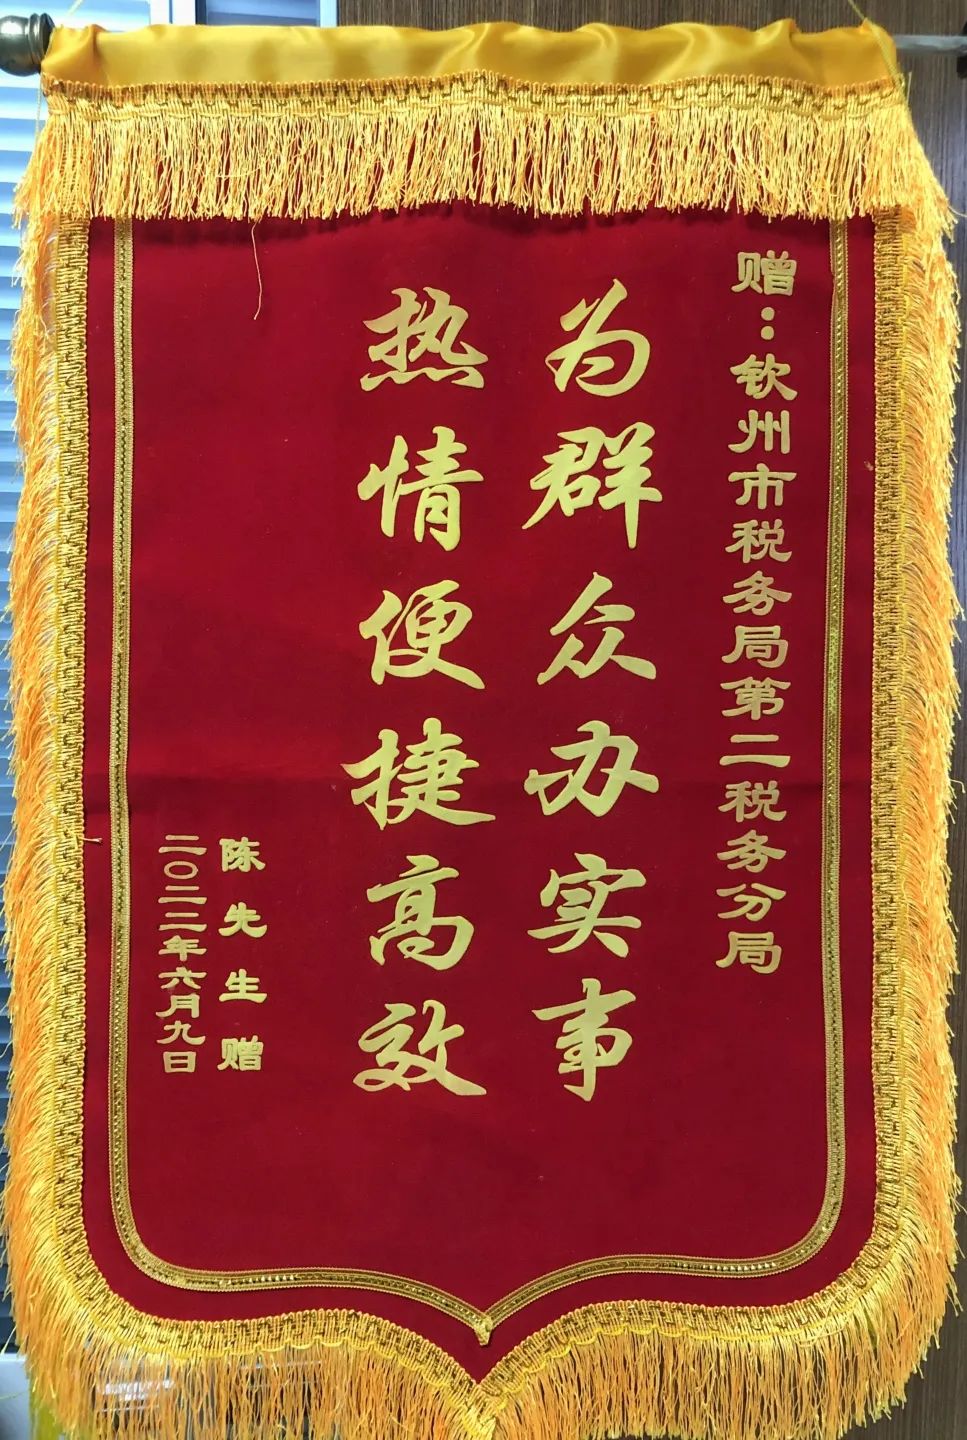 赠：钦州市税务局第二税务分局
为群众办实事
热情便捷高效
陈先生赠
二〇二二年六月九日